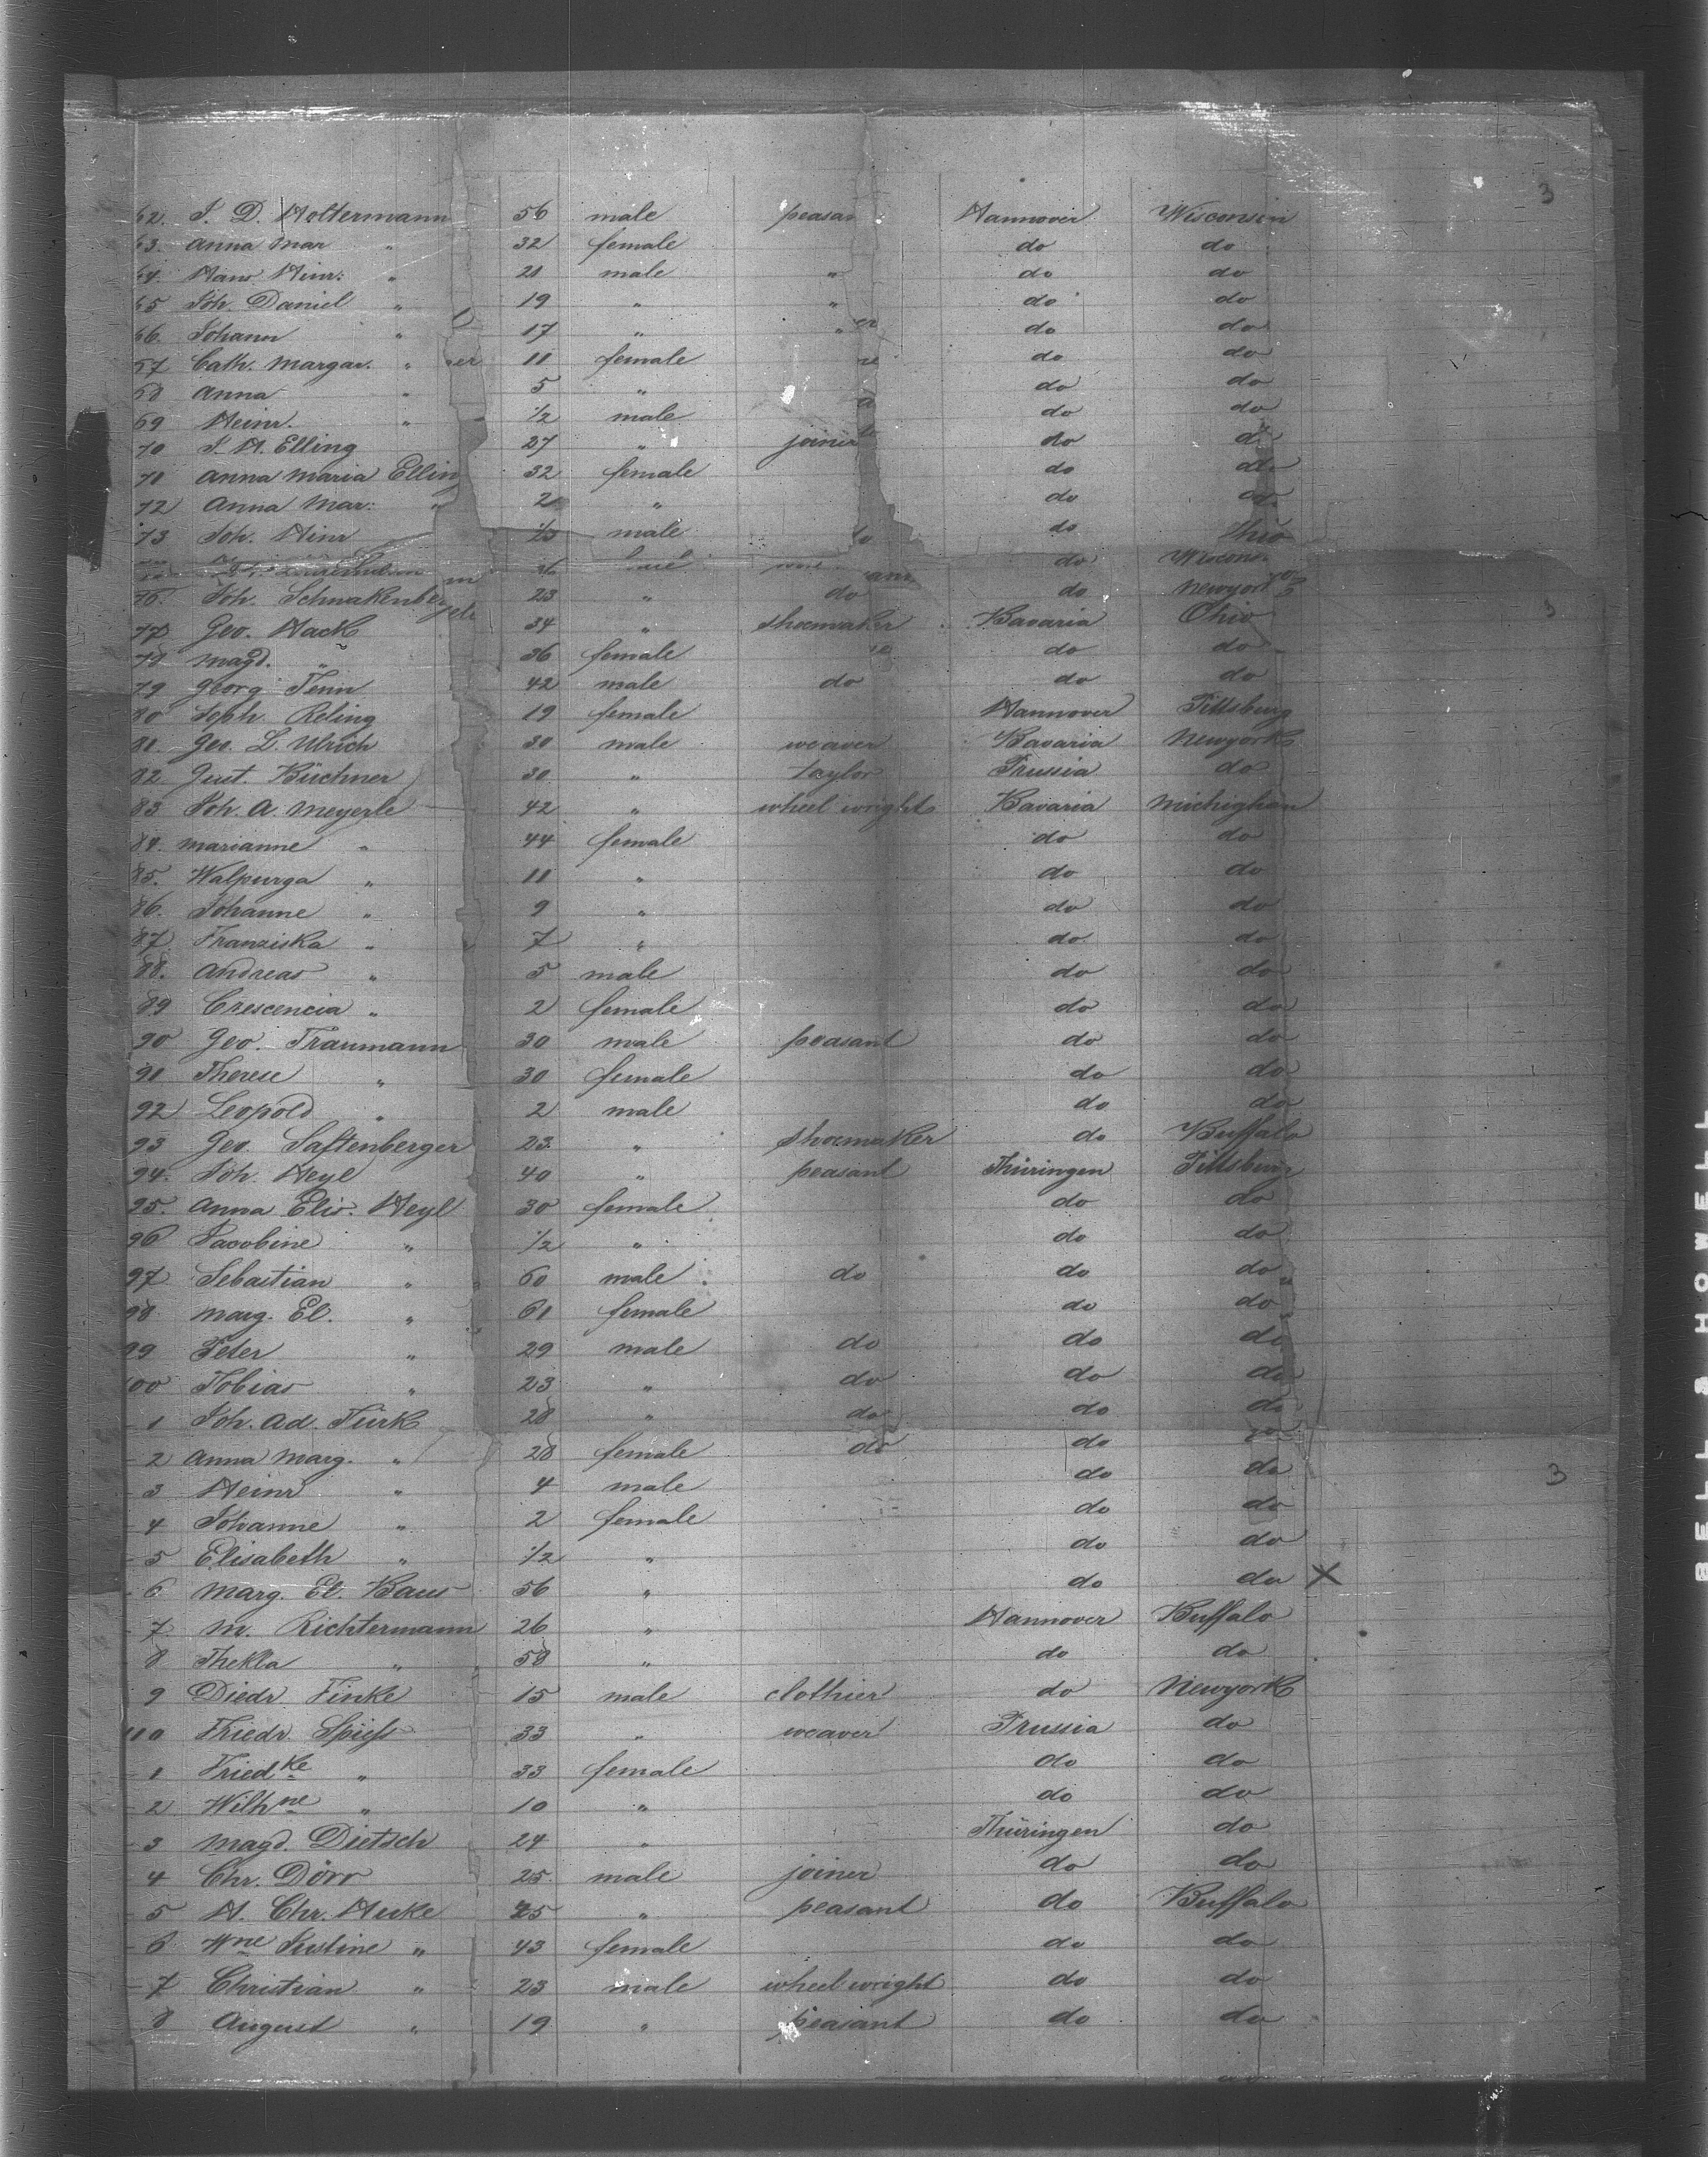 3
62. J. D. Holtermann 56 male peasan Hannover Wisconsin
63. Anna Mar " 32 female do do
64. Hans Hinr: " 21 male " do do
65 Joh. Daniel " 19 " " do do
66. Johann " 17 " " do do
67 Cath. Margar. " 11 female do do
68 Anna " 5 " do do
69 Heinr. " 1/2 male do do
70 J. H. Elling 27 " joiner do do
71 Anna Maria Ellin 32 female do do
72 Anna Mar: " 2 " do do
73 Joh. Hinr male do Ohio
do Wiscons
76. Joh. Schnakenberg 23 " do do Newyork
77 Geo. Hack 34 " shoemaker Bavaria Ohio
3
78 Magd. " 36 female do do
79 Georg Fenn 42 male do do do
80 Soph. Reling 19 female Hannover Pittsburg
81. Geo. L. Ulrich 30 male weaver Bavaria Newyork
82 Gust. Büchner 30 " taylor Prussia do
83 Joh. A. Meyerle 42 " wheel wright Bavaria Michighan
84. Marianne " 44 female do do
85. Walpurga " 11 " do do
86. Johanne " 9 " do do
87. Franziska " 7 " do do
88. Andreas " 5 male do do
89 Crescencia " 2 female do do
90 Geo. Traumann 30 male peasant do do
91 Therese " 30 female do do
92 Leopold " 2 male do do
93 Geo. Saftenberger 23. " shoemaker do Buffalo
94. Joh. Heyl 40 " peasant Thüringen Pittsburg
95. Anna Elis. Heyl 30 female do do
96 Jacobine " 1/2 " do do
97 Sebastian " 60 male do do do
98. Marg. El. " 61 female do do
99 Peter " 29 male do do do
100 Tobias " 23 " do do do
1 Joh. Ad. Türk 28 " do do do
2 Anna Marg. " 28 female do do do
3 Heinr " 4 male do do
3
4 Johanne " 2 female do do
5 Elisabeth " 1/2 " do do
6 Marg. El. Baus 56 " do do X
7 M. Richtermann 26 " Hannover Buffalo
8 Thekla " 58 " do do
9 Diedr. Finke 15 male clothier do Newyork
110 Friedr. Spieß 33 " weaver Prussia do
1 Friedke " 33 female do do
2 Wilhne " 10 " do do
3 Magd. Dietsch 24 " Thüringen do
4 Chr. Dörr 25. male joiner do do
5 H. Chr. Hucke 45 " peasant do Buffalo
6 Wne Justine " 43 female do do
7 Christian " 23 male wheel wright do do
8 August " 19 " peasant do do
BELL & HOWELL